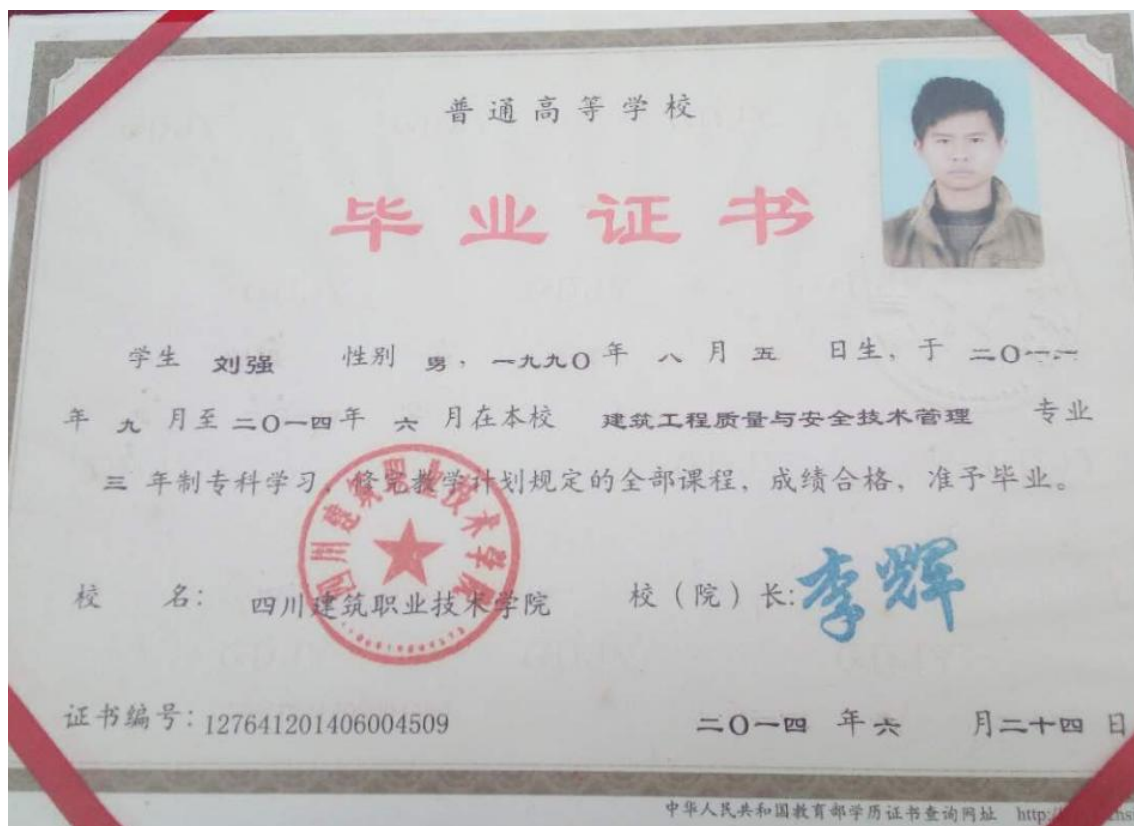 普通高等学校
毕业证书
学生 刘强 性别 男，一九九〇年 八 月 五 日生，于 二〇一一
年 九 月至二〇一四年 六 月在本校 建筑工程质量与安全技术管理 专业
三 年制专科学习，修完教学计划规定的全部课程，成绩合格，准予毕业。
四川建筑职业技术学院
校 名： 四川建筑职业技术学院 校（院）长：李辉
证书编号：127641201406004509 二〇一四 年 六 月二十四 日
中华人民共和国教育部学历证书查询网址 http:/